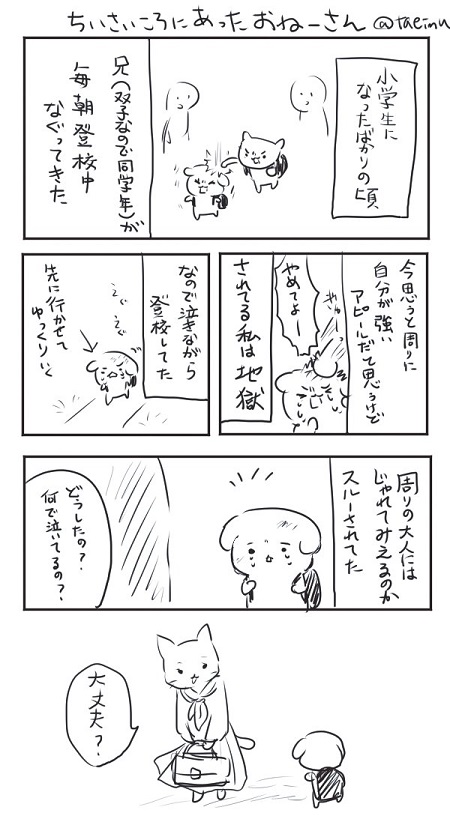 ちいさいころにあったおねーさん @taeimu
小学生に
なったばかりの頃
兄(双子なので同学年)が
毎朝登校中
なぐってきた
今思うと周りに
自分が強い
アピールだと思うけど
やめてよー
されてる私は地獄
なので泣きながら
登校してた
えぐ
えぐ
先に行かせて
ゆっくりいく
周りの大人には
じゃれてみえるのか
スルーされてた
どうしたの?
何で泣いてるの?
大丈夫?